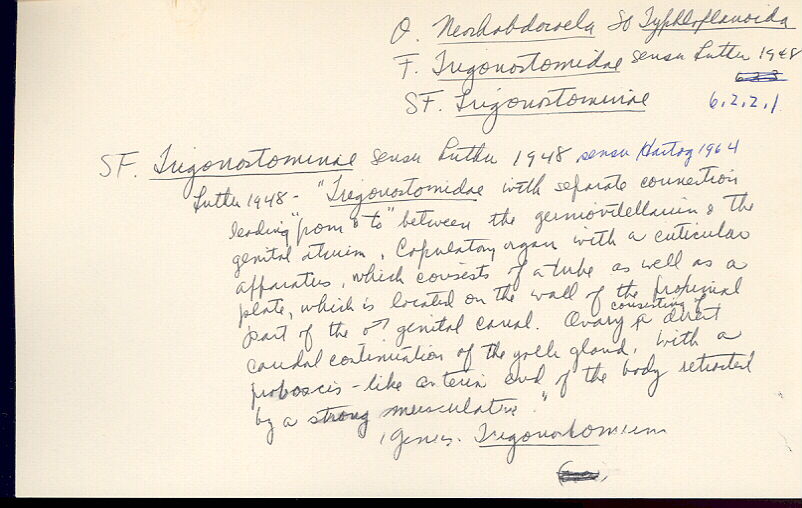 O. Neorhabdocoela SO Typhloplanoida
F. Trigonostomidae sensu Luther 1948
SF. Trigonostominae 6.2.2.1
SF. Trigonostominae sensu Luther 1948 sensu Hartog 1964
Luther 1948 - "Trigonostomidae with separate connection
leading "from & to" between the germovitellarium & the
genital atrium. Copulatory organ with a cuticular
apparatus, which consists of a tube as well as a
plate, which is located on the wall of the proximal
part of the ♂ genital canal. Ovary consisting of a direct
caudal continuation of the yolk gland. With a
proboscis-like anterior end of the body retracted
by a strong musculature."
1 genus. Trigonostomum